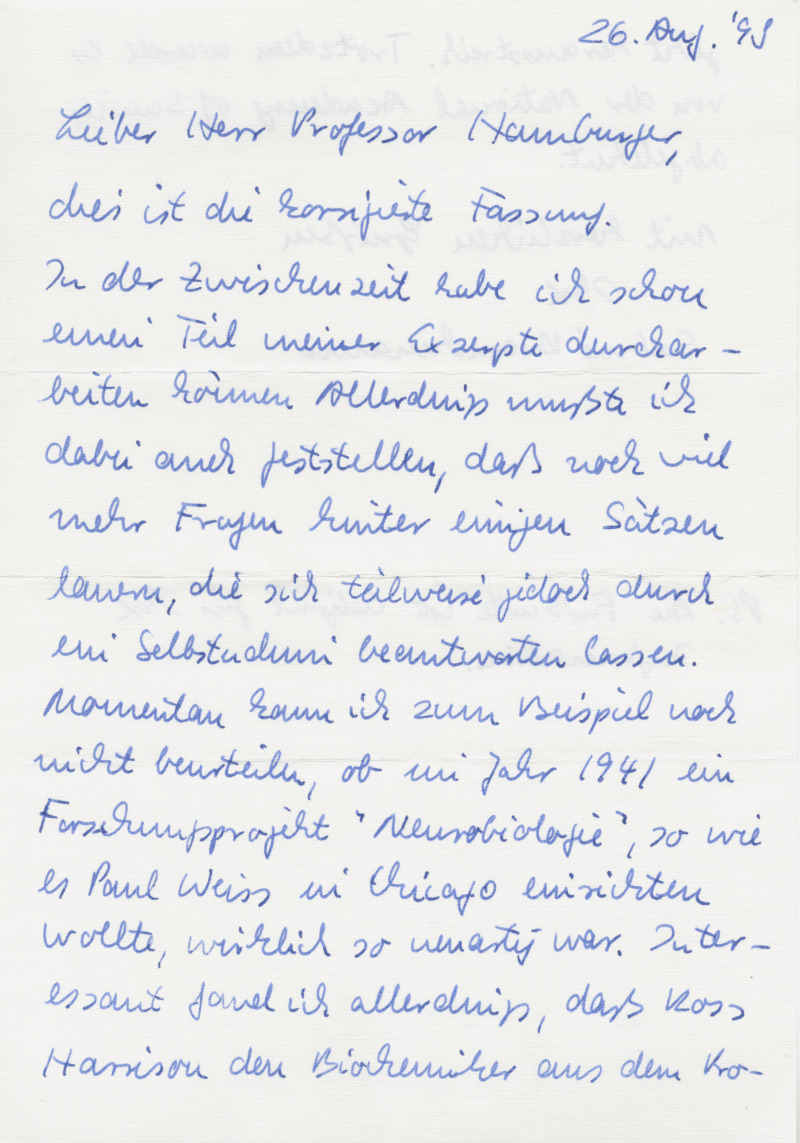 26. Aug. '93
Lieber Herr Professor Hamburger,
dies ist die korrigierte Fassung.
In der Zwischenzeit habe ich schon
einen Teil meiner Exzerpte durchar-
beiten können Allerdings mußte ich
dabei auch feststellen, daß noch viel
mehr Fragen hinter einigen Sätzen
lauern, die sich teilweise jedoch durch
ein Selbstudium beantworten lassen.
Momentan kann ich zum Beispiel noch
nicht beurteilen, ob im Jahr 1941 ein
Forschungsprojekt "Neurobiologie", so wie
es Paul Weiss in Chicago einrichten
wollte, wirklich so neuartig war. Inter-
essant fand ich allerdings, daß Ross
Harrison den Biochemiker aus dem Pro-